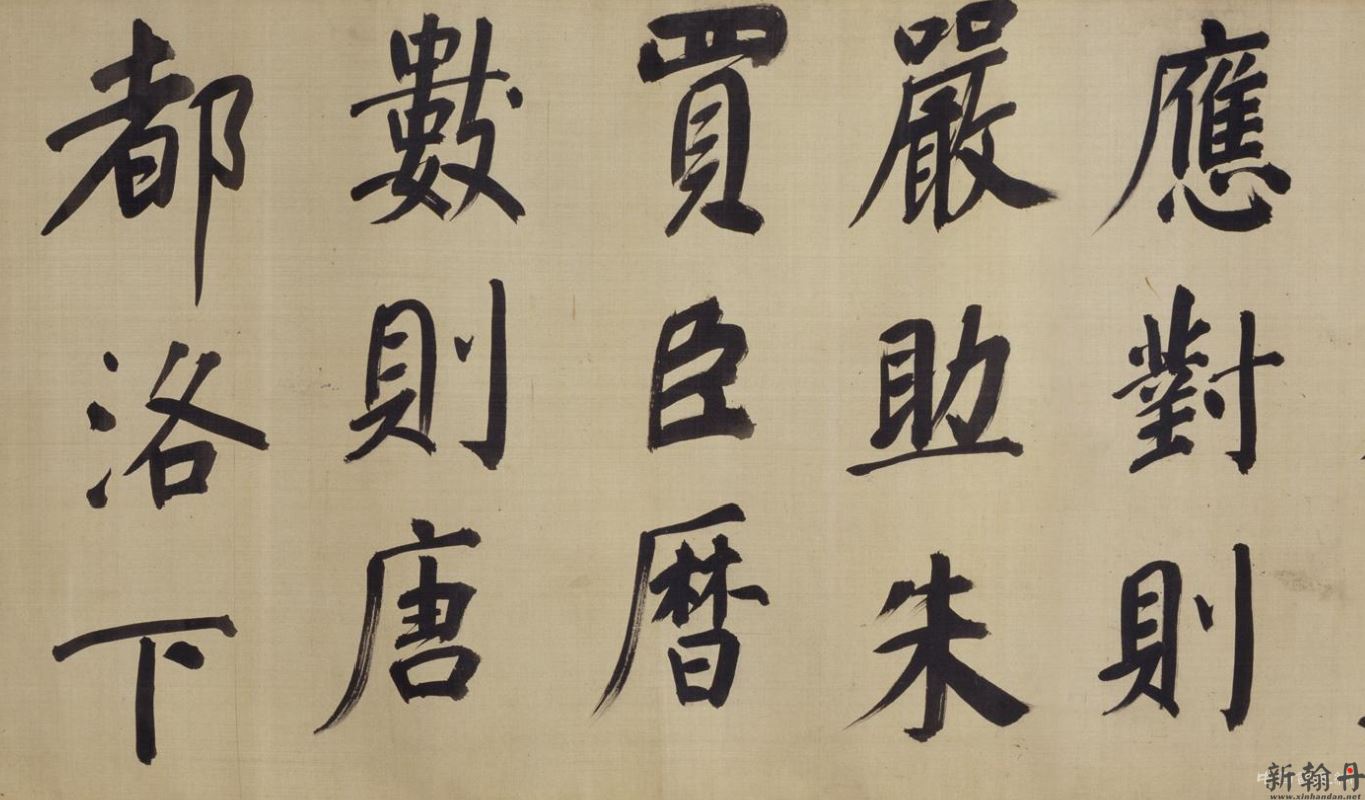 應對則
嚴助朱
買臣曆
數則唐
都洛下
新翰丹
www.xinhandan.net